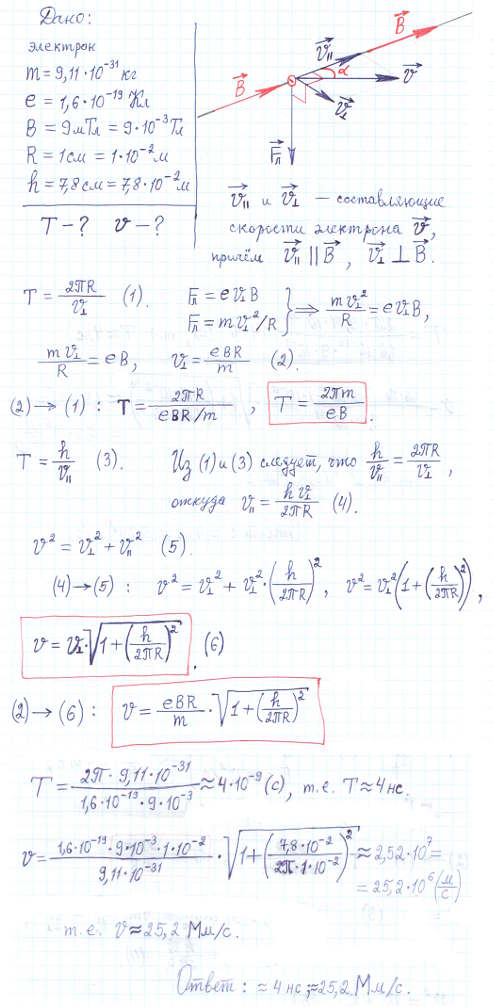 Дано:
электрон
m = 9,11·10⁻³¹ кг
e = 1,6·10⁻¹⁹ Кл
B = 9 мТл = 9·10⁻³ Тл
R = 1 см = 1·10⁻² м
h = 7,8 см = 7,8·10⁻² м
T - ? v - ?
B⃗ v⃗∥ B⃗ α v⃗ v⃗⊥ F⃗л
v⃗∥ и v⃗⊥ — составляющие
скорости электрона v⃗,
причём v⃗∥ ∥ B⃗, v⃗⊥ ⊥ B⃗.
T = 2πR/v⊥ (1). Fл = ev⊥B
Fл = mv⊥²/R } ⇒ mv⊥²/R = ev⊥B,
mv⊥/R = eB, v⊥ = eBR/m (2).
(2) → (1) : T = 2πR/(eBR/m) , T = 2πm/eB .
T = h/v∥ (3). Из (1) и (3) следует, что h/v∥ = 2πR/v⊥ ,
откуда v∥ = hv⊥/2πR (4).
v² = v⊥² + v∥² (5).
(4) → (5) : v² = v⊥² + v⊥²·(h/2πR)² , v² = v⊥²(1+(h/2πR)²) ,
v = v⊥·√(1+(h/2πR)²) . (6)
(2) → (6) : v = eBR/m · √(1+(h/2πR)²)
T = 2π · 9,11·10⁻³¹/(1,6·10⁻¹⁹·9·10⁻³) ≈ 4·10⁻⁹ (с), т.е. T ≈ 4 нс.
v = 1,6·10⁻¹⁹·9·10⁻³·1·10⁻²/(9,11·10⁻³¹) · √(1+(7,8·10⁻²/(2π·1·10⁻²))²) ≈ 2,52·10⁷ =
= 25,2·10⁶ (м/с)
т.е. v ≈ 25,2 Мм/с.
Ответ : ≈ 4 нс; ≈ 25,2 Мм/с.